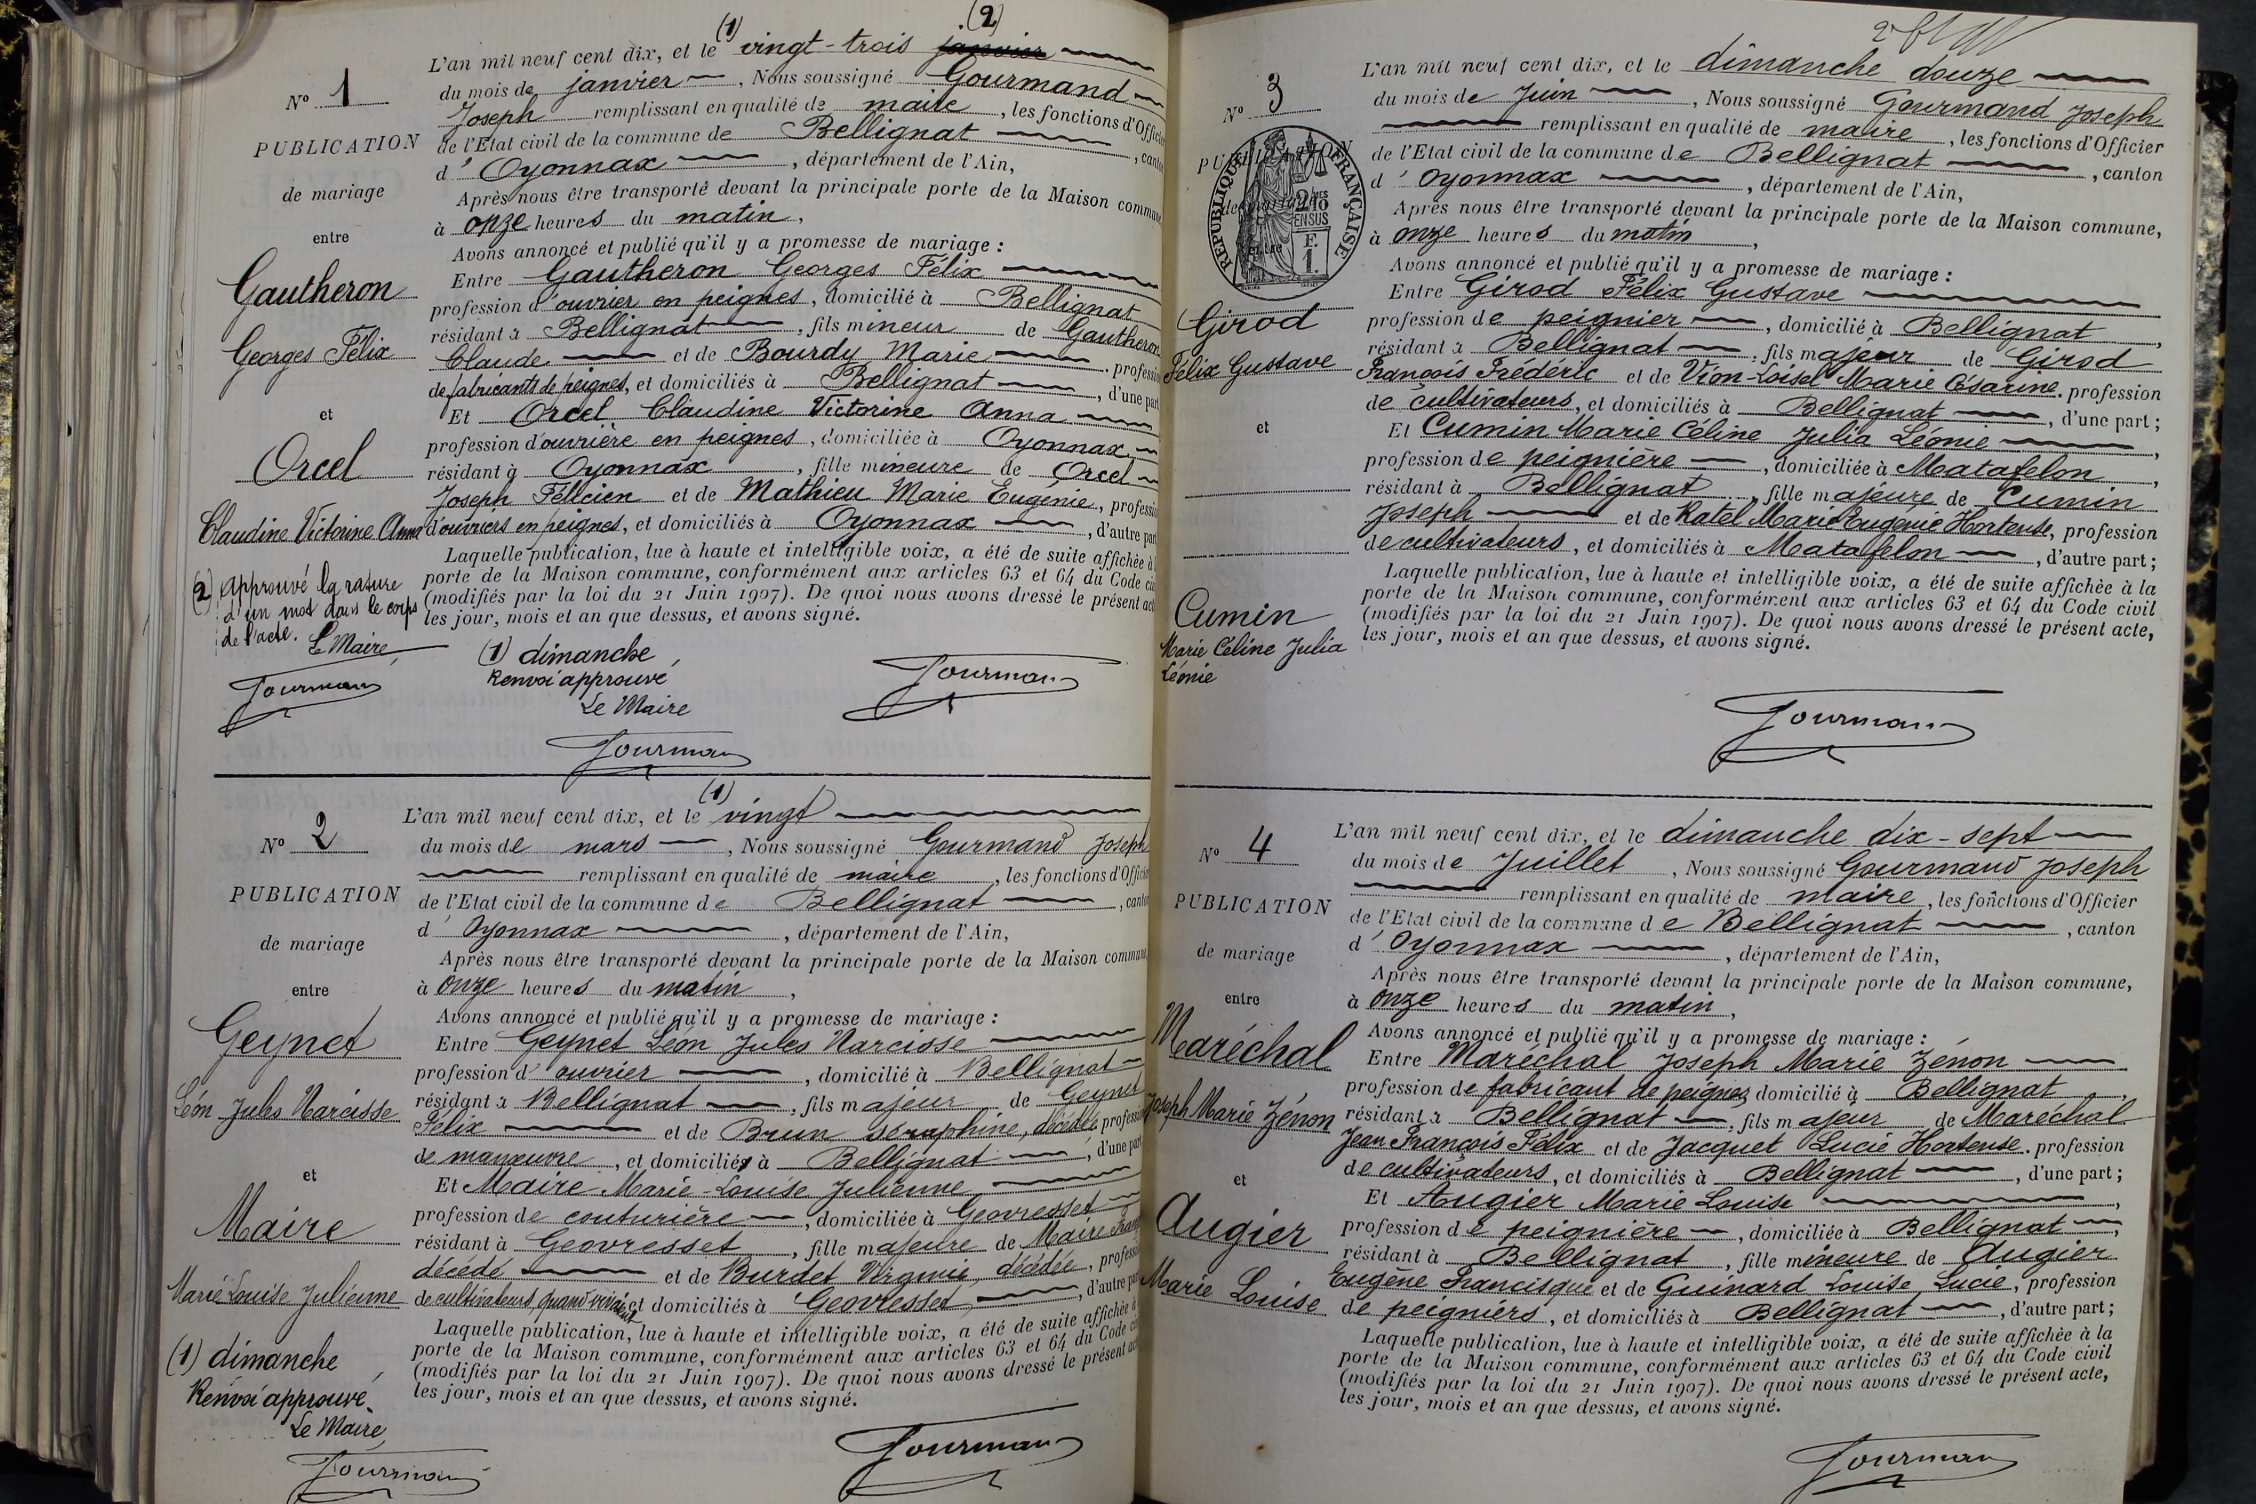 (1) (2)
N° 1
PUBLICATION
de mariage
entre
Gautheron
Georges Félix
et
Orcel
Claudine Victorine Anna
(2) Approuvé la rature
d'un mot dans le corps
de l'acte.
Le Maire
L'an mil neuf cent dix, et le vingt-trois janvier
du mois de janvier, Nous soussigné Gourmand
Joseph remplissant en qualité de maire, les fonctions d'Officier
de l'Etat civil de la commune de Bellignat, canton
d'Oyonnax, département de l'Ain,
Après nous être transporté devant la principale porte de la Maison commune
à onze heures du matin,
Avons annoncé et publié qu'il y a promesse de mariage :
Entre Gautheron Georges Félix
profession d'ouvrier en peignes, domicilié à Bellignat
résidant à Bellignat, fils mineur de Gautheron
Claude et de Bourdy Marie, profession
de fabricants de peignes, et domiciliés à Bellignat, d'une part
Et Orcel Claudine Victorine Anna
profession d'ouvrière en peignes, domiciliée à Oyonnax
résidant à Oyonnax, fille mineure de Orcel
Joseph Félicien et de Mathieu Marie Eugénie, profession
d'ouvriers en peignes, et domiciliés à Oyonnax, d'autre part
Laquelle publication, lue à haute et intelligible voix, a été de suite affichée à
porte de la Maison commune, conformément aux articles 63 et 64 du Code civ
(modifiés par la loi du 21 Juin 1907). De quoi nous avons dressé le présent act
les jour, mois et an que dessus, et avons signé.
(1) dimanche
Renvoi approuvé
Le Maire
Gourmand
Gourmand
Gourmand
N° 2
PUBLICATION
de mariage
entre
Geynet
Léon Jules Narcisse
et
Maire
Marie Louise Julienne
(1) dimanche
Renvoi approuvé
Le Maire
Gourmand
(1)
L'an mil neuf cent dix, et le vingt
du mois de mars, Nous soussigné Gourmand Joseph
remplissant en qualité de maire, les fonctions d'Officier
de l'Etat civil de la commune de Bellignat, canton
d'Oyonnax, département de l'Ain,
Après nous être transporté devant la principale porte de la Maison commune,
à onze heures du matin,
Avons annoncé et publié qu'il y a promesse de mariage :
Entre Geynet Léon Jules Narcisse
profession d'ouvrier, domicilié à Bellignat
résidant à Bellignat, fils majeur de Geynet
Félix et de Brun Séraphine, décédée, profession
de manœuvre, et domiciliés à Bellignat, d'une part
Et Maire Marie-Louise Julienne
profession de couturière, domiciliée à Géovresset
résidant à Géovresset, fille majeure de Maire Franç
décédé et de Burdet Virginie, décédée, profession
de cultivateurs quand vivaient et domiciliés à Géovresset, d'autre part
Laquelle publication, lue à haute et intelligible voix, a été de suite affichée à
porte de la Maison commune, conformément aux articles 63 et 64 du Code ci
(modifiés par la loi du 21 Juin 1907). De quoi nous avons dressé le présent ac
les jour, mois et an que dessus, et avons signé.
Gourmand
N° 3
PUBLICATION
de mariage
entre
REPUBLIQUE FRANÇAISE
2/10es
EN SUS
F.
1.
Girod
Félix Gustave
et
Cumin
Marie Céline Julia
Léonie
L'an mil neuf cent dix, et le dimanche douze
du mois de Juin, Nous soussigné Gourmand Joseph
remplissant en qualité de maire, les fonctions d'Officier
de l'Etat civil de la commune de Bellignat, canton
d'Oyonnax, département de l'Ain,
Après nous être transporté devant la principale porte de la Maison commune,
à onze heures du matin,
Avons annoncé et publié qu'il y a promesse de mariage :
Entre Girod Félix Gustave
profession de peignier, domicilié à Bellignat,
résidant à Bellignat, fils majeur de Girod
François Frédéric et de Vion-Loisel Marie Césarine, profession
de cultivateurs, et domiciliés à Bellignat, d'une part ;
Et Cumin Marie Céline Julia Léonie,
profession de peignière, domiciliée à Matafelon,
résidant à Bellignat, fille majeure de Cumin
Joseph et de Ratel Marie Eugénie Hortense, profession
de cultivateurs, et domiciliés à Matafelon, d'autre part ;
Laquelle publication, lue à haute et intelligible voix, a été de suite affichée à la
porte de la Maison commune, conformément aux articles 63 et 64 du Code civil
(modifiés par la loi du 21 Juin 1907). De quoi nous avons dressé le présent acte,
les jour, mois et an que dessus, et avons signé.
Gourmand
N° 4
PUBLICATION
de mariage
entre
Maréchal
Joseph Marie Zénon
et
Augier
Marie Louise
L'an mil neuf cent dix, et le dimanche dix-sept
du mois de Juillet, Nous soussigné Gourmand Joseph
remplissant en qualité de maire, les fonctions d'Officier
de l'Etat civil de la commune de Bellignat, canton
d'Oyonnax, département de l'Ain,
Après nous être transporté devant la principale porte de la Maison commune,
à onze heures du matin,
Avons annoncé et publié qu'il y a promesse de mariage :
Entre Maréchal Joseph Marie Zénon
profession de fabricant de peignes, domicilié à Bellignat,
résidant à Bellignat, fils majeur de Maréchal
Jean François Félix et de Jacquet Lucie Hortense, profession
de cultivateurs, et domiciliés à Bellignat, d'une part ;
Et Augier Marie Louise,
profession de peignière, domiciliée à Bellignat,
résidant à Bellignat, fille mineure de Augier
Eugène Francisque et de Guinard Louise Lucie, profession
de peigniers, et domiciliés à Bellignat, d'autre part ;
Laquelle publication, lue à haute et intelligible voix, a été de suite affichée à la
porte de la Maison commune, conformément aux articles 63 et 64 du Code civil
(modifiés par la loi du 21 Juin 1907). De quoi nous avons dressé le présent acte,
les jour, mois et an que dessus, et avons signé.
Gourmand